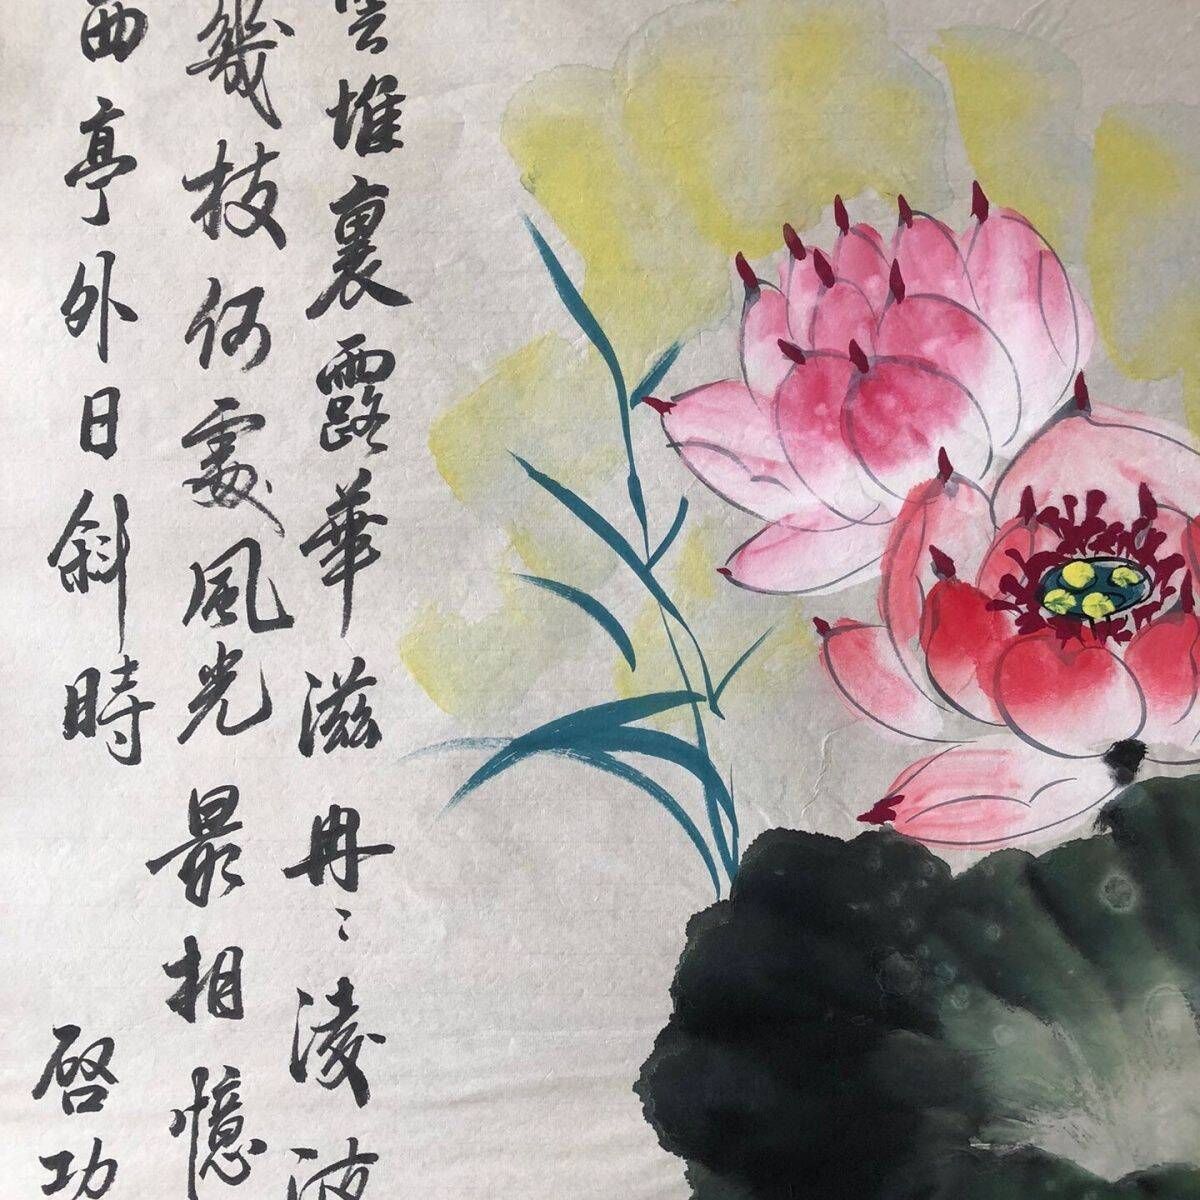 雲堆裏露華滋冉〻淩波
幾枝何處風光最相憶
西亭外日斜時
啓功